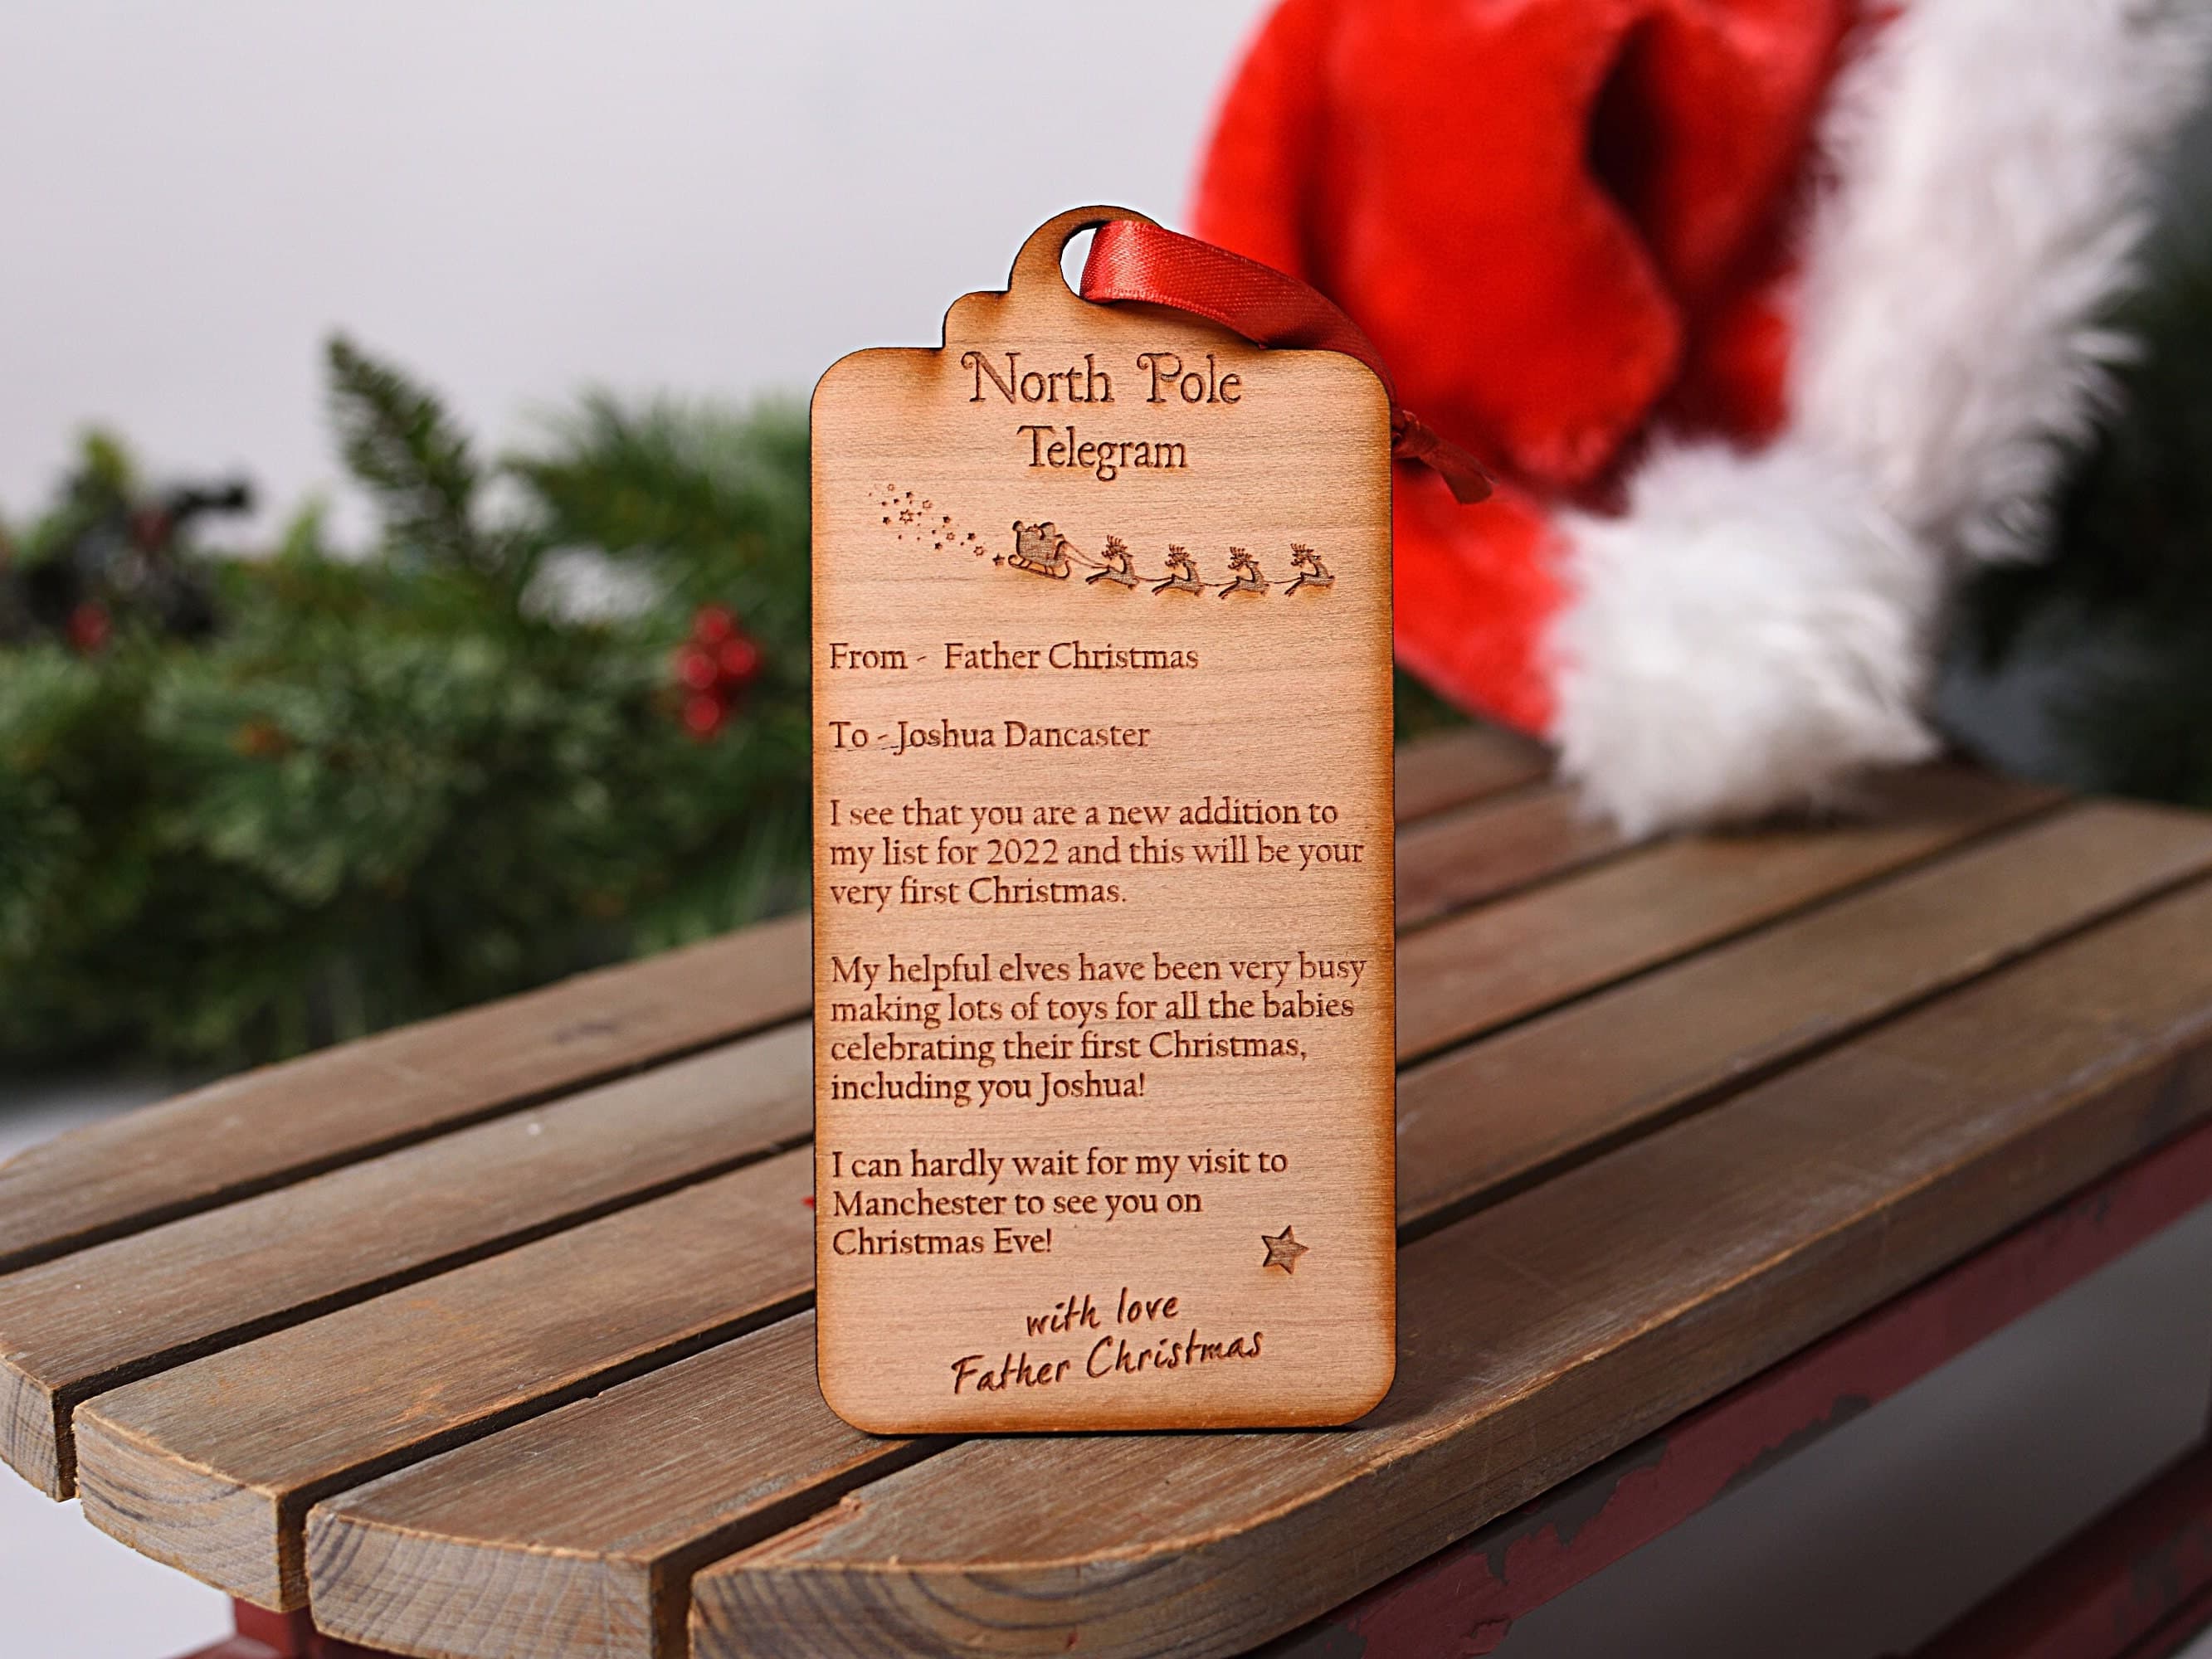 North Pole
Telegram
From - Father Christmas
To - Joshua Dancaster
I see that you are a new addition to
my list for 2022 and this will be your
very first Christmas.
My helpful elves have been very busy
making lots of toys for all the babies
celebrating their first Christmas,
including you Joshua!
I can hardly wait for my visit to
Manchester to see you on
Christmas Eve!
with love
Father Christmas